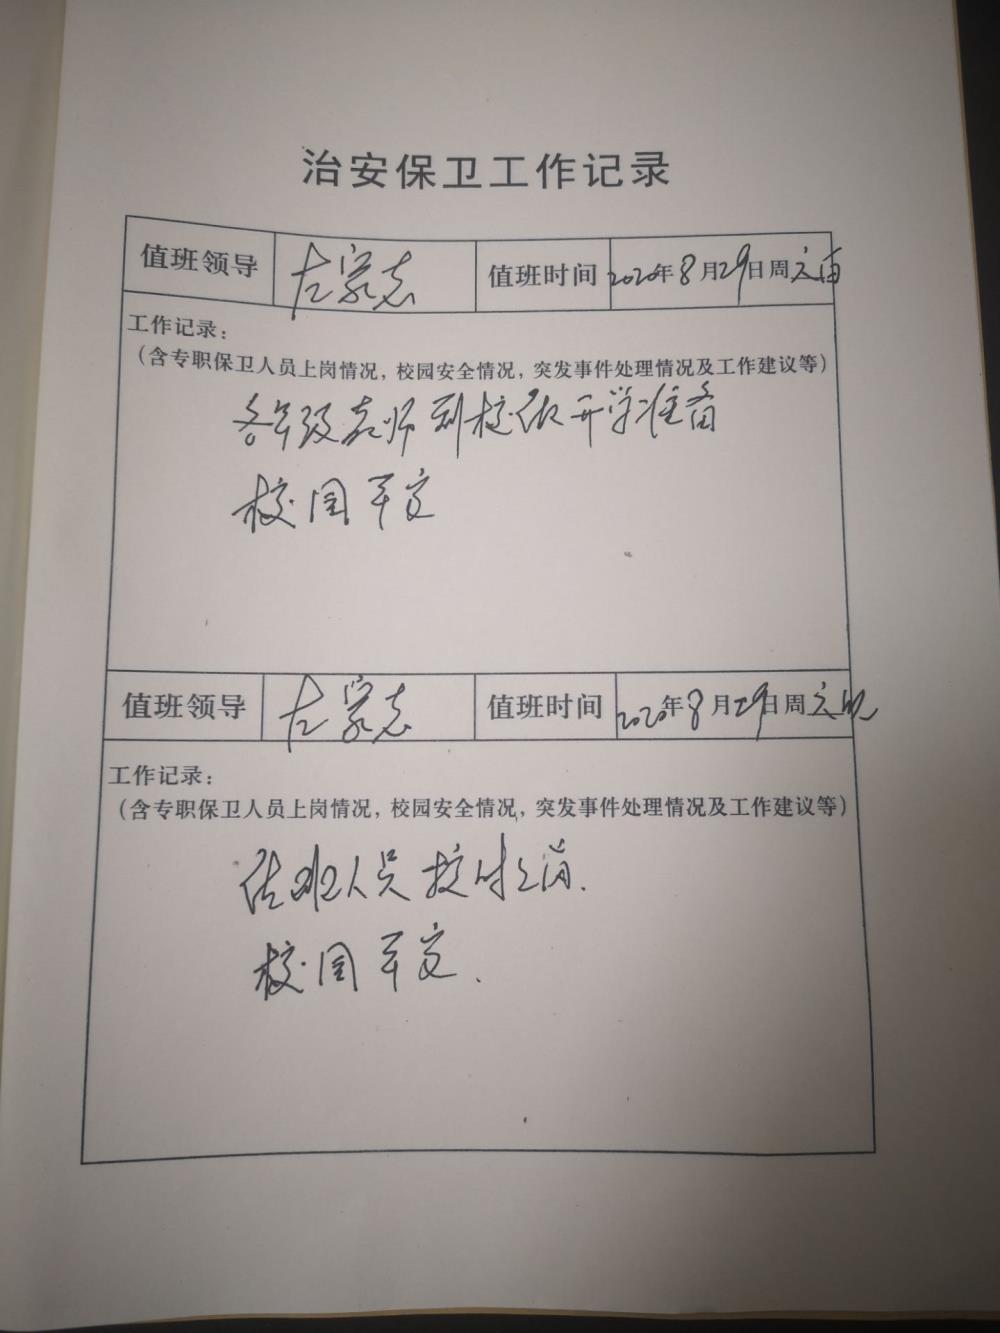 治安保卫工作记录
值班领导 左家志 值班时间 2020年8月29日周六白
工作记录：
（含专职保卫人员上岗情况，校园安全情况，突发事件处理情况及工作建议等）
各年级老师到校做开学准备
校园平安
值班领导 左家志 值班时间 2020年8月29日周六晚
工作记录：
（含专职保卫人员上岗情况，校园安全情况，突发事件处理情况及工作建议等）
值班人员按时上岗.
校园平安.